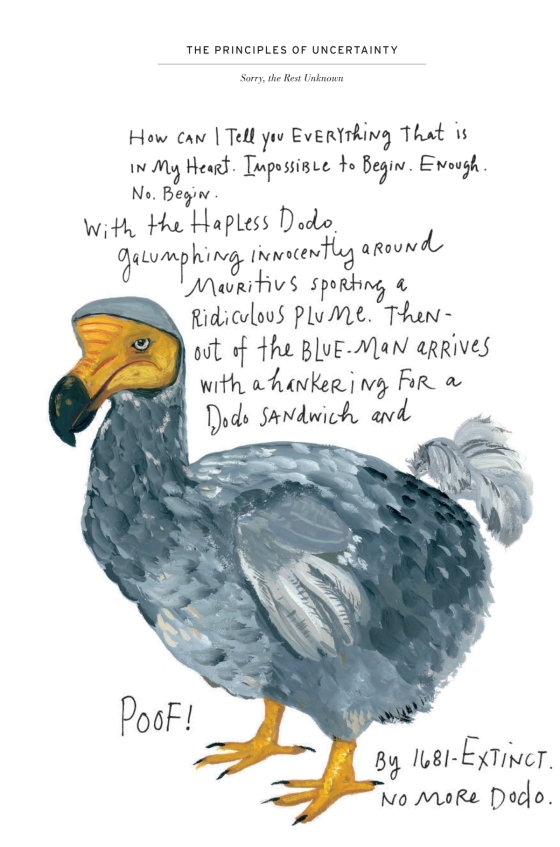 THE PRINCIPLES OF UNCERTAINTY
Sorry, the Rest Unknown
How CAN I Tell you EVERYthing That is
IN My HeArt. Impossible to Begin. Enough.
No. Begin.
With the HapLess Dodo
gaLumphing innocently around
Mauritius sporting a
Ridiculous PLuMe. Then-
out of the BLUE-MAN ARRives
with a hankering FoR a
Dodo SANDwich and
PooF!
By 1681-EXTINCT.
No More Dodo.